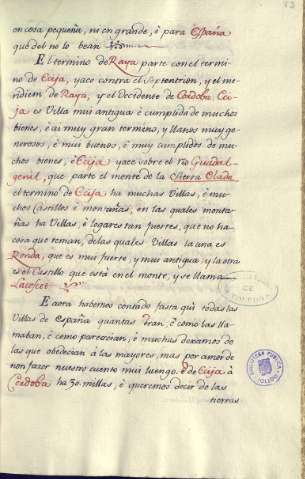 en cosa pequeña, ni en grande, è para España
què del no lo bean
El termino de Raya parte con el termi-
no de Ecija, yace contra el Septentrion, y el me-
ridiem de Raya, y el Occidente de Cordoba Eci-
ja es Villa mui antigua è cumplida de muchos
bienes, è ai muy gran termino, y llanos muy ge-
nerosos, è mui buenos, è muy cumplidos de mu-
chos bienes, è Ecija yace sobre el rio Guadal-
genil, que parte el monte de la Sierra Elada
el termino de Ecija ha muchas Villas, è mu-
chos Castillos è montañas, en las quales monta-
ñas ha Villas, è logares tan fuertes, que no ha
cosa que teman, de las quales Villas la una es
Ronda, que es muy fuerte, y muy antigua; y la otra
es el Castillo que está en el monte, y se llama
E aora habemos contado fasta quì todas las
Villas de España quantas eran, è como las lla-
maban, è como parescian, è muchas dexamos de
las que obedecian à las mayores, mas por amor de
non fazer nuestro cuento mui luengo. è de Ecija à
Cordoba ha 30 millas, è queremos decir de las
tierras